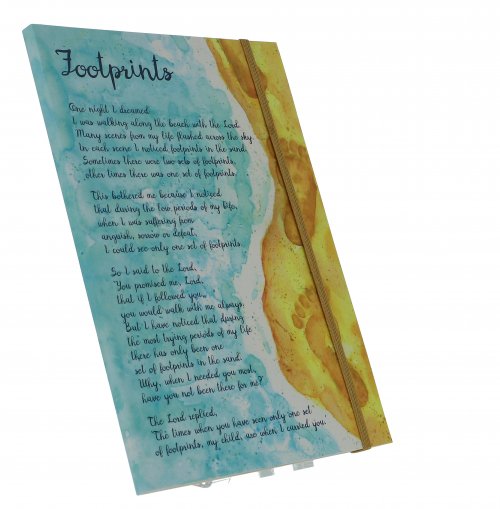 Footprints
One night I dreamed
I was walking along the beach with the Lord.
Many scenes from my life flashed across the sky.
In each scene I noticed footprints in the sand.
Sometimes there were two sets of footprints,
other times there was one set of footprints.
This bothered me because I noticed
that during the low periods of my life,
when I was suffering from
anguish, sorrow or defeat,
I could see only one set of footprints.
So I said to the Lord,
You promised me, Lord,
that if I followed you,
you would walk with me always.
But I have noticed that during
the most trying periods of my life
there has only been one
set of footprints in the sand.
Why, when I needed you most,
have you not been there for me?
The Lord replied,
The times when you have seen only one set
of footprints, my child, was when I carried you.